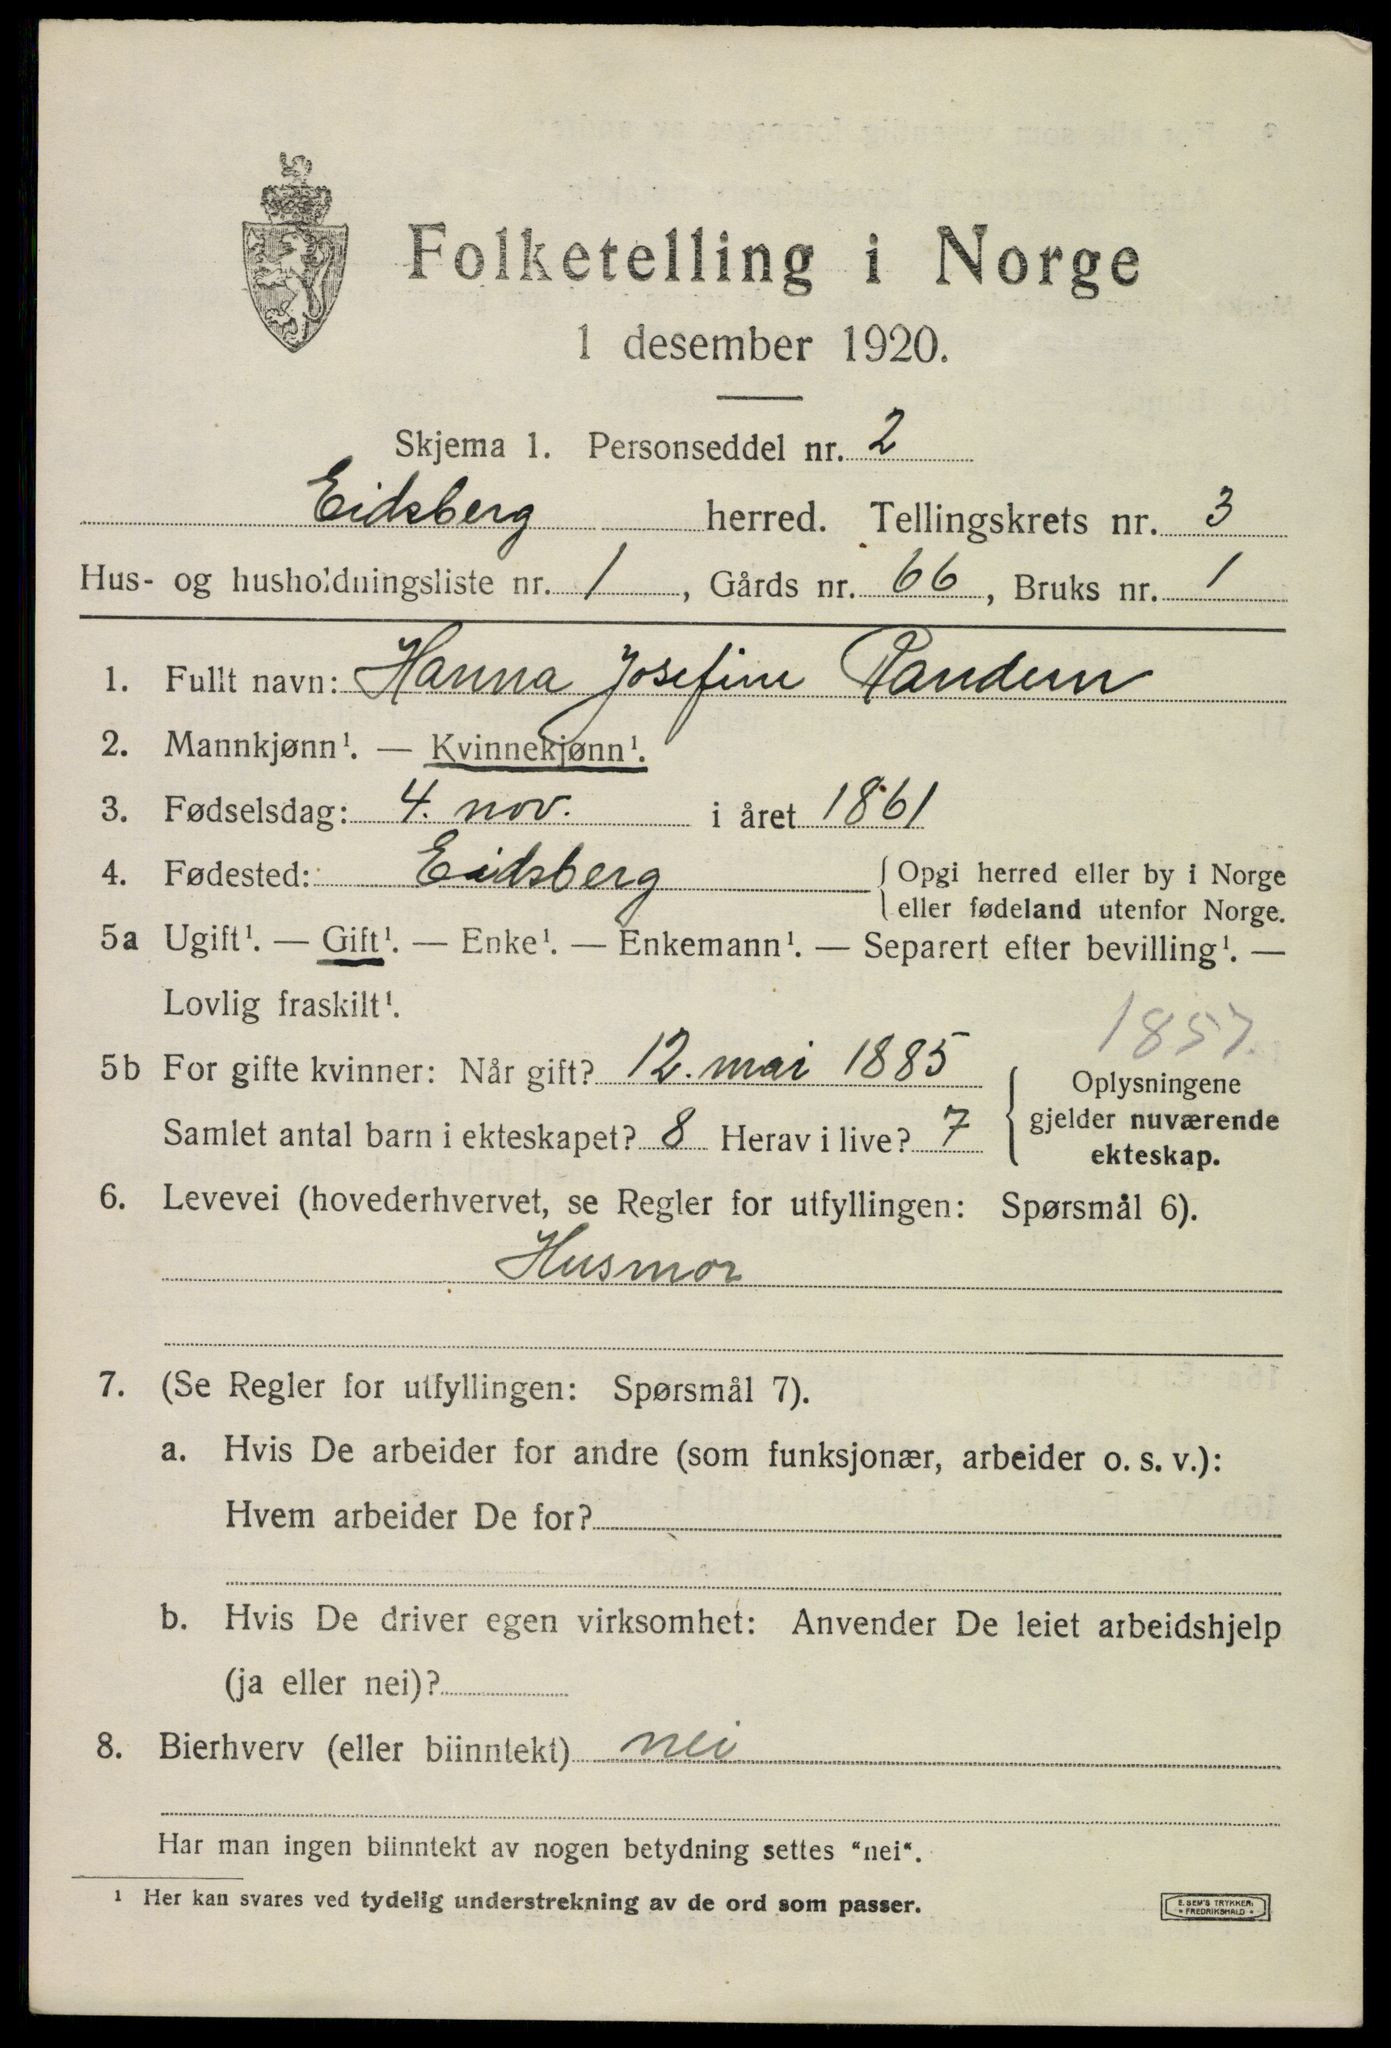 Folketelling i Norge
1 desember 1920.
Skjema 1. Personseddel nr. 2
Eidsberg herred. Tellingskrets nr. 3
Hus- og husholdningsliste nr. 1, Gårds nr. 66, Bruks nr. 1
1. Fullt navn: Hanna Josefine Randem
2. Mannkjønn¹. — Kvinnekjønn¹.
3. Fødselsdag: 4. nov. i året 1861
4. Fødested: Eidsberg { Opgi herred eller by i Norge
eller fødeland utenfor Norge.
5a Ugift¹. — Gift¹. — Enke¹. — Enkemann¹. — Separert efter bevilling¹. —
Lovlig fraskilt¹.
1857.
5b For gifte kvinner: Når gift? 12. mai 1885
Samlet antal barn i ekteskapet? 8 Herav i live? 7
{ Oplysningene
gjelder nuværende
ekteskap.
6. Levevei (hovederhvervet, se Regler for utfyllingen: Spørsmål 6).
Husmor
7. (Se Regler for utfyllingen: Spørsmål 7).
a. Hvis De arbeider for andre (som funksjonær, arbeider o. s. v.):
Hvem arbeider De for?
b. Hvis De driver egen virksomhet: Anvender De leiet arbeidshjelp
(ja eller nei)?
8. Bierhverv (eller biinntekt) nei
Har man ingen biinntekt av nogen betydning settes "nei".
¹ Her kan svares ved tydelig understrekning av de ord som passer.
E. SEM'S TRYKKERI
* FREDRIKSHALD *